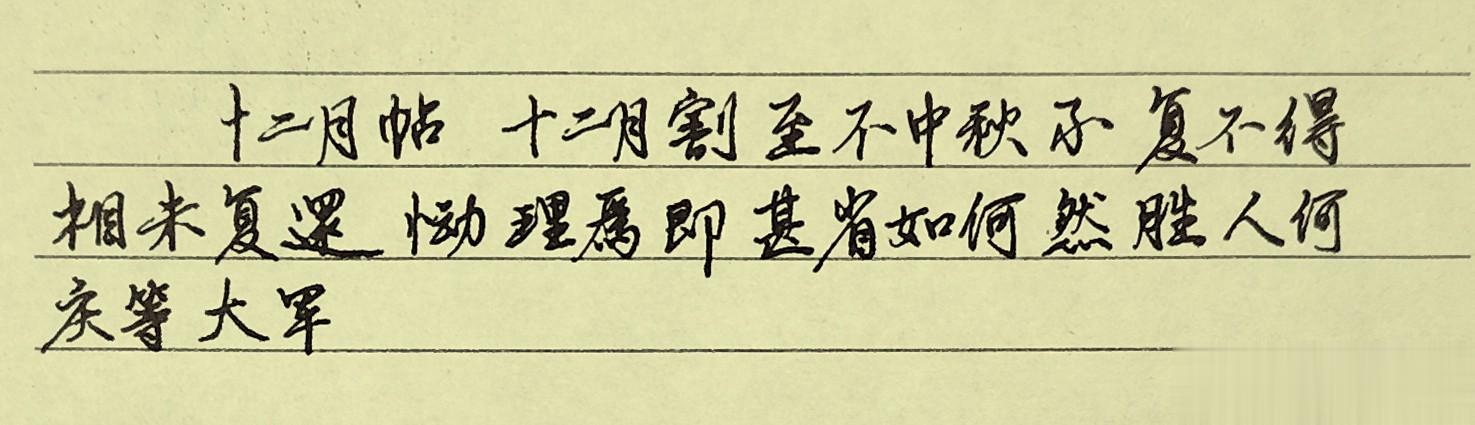 十二月帖 十二月割至不中秋不复不得
相未复还恸理为即甚省如何然胜人何
庆等大军